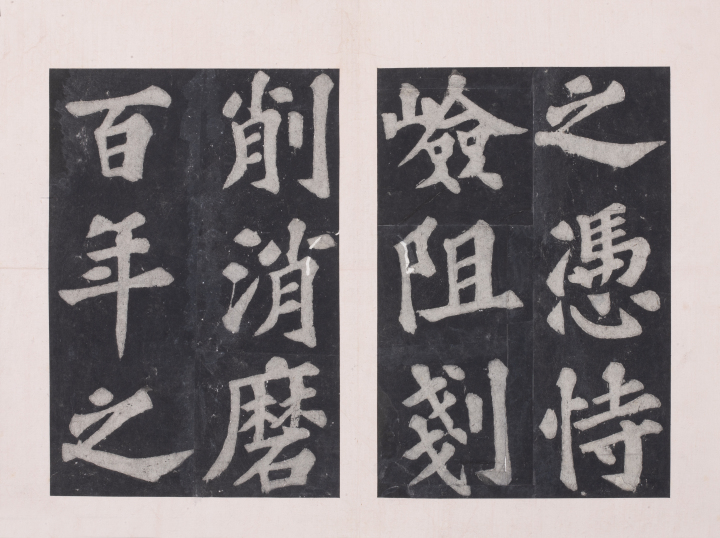 之憑恃
嶮阻剗
削消磨
百年之